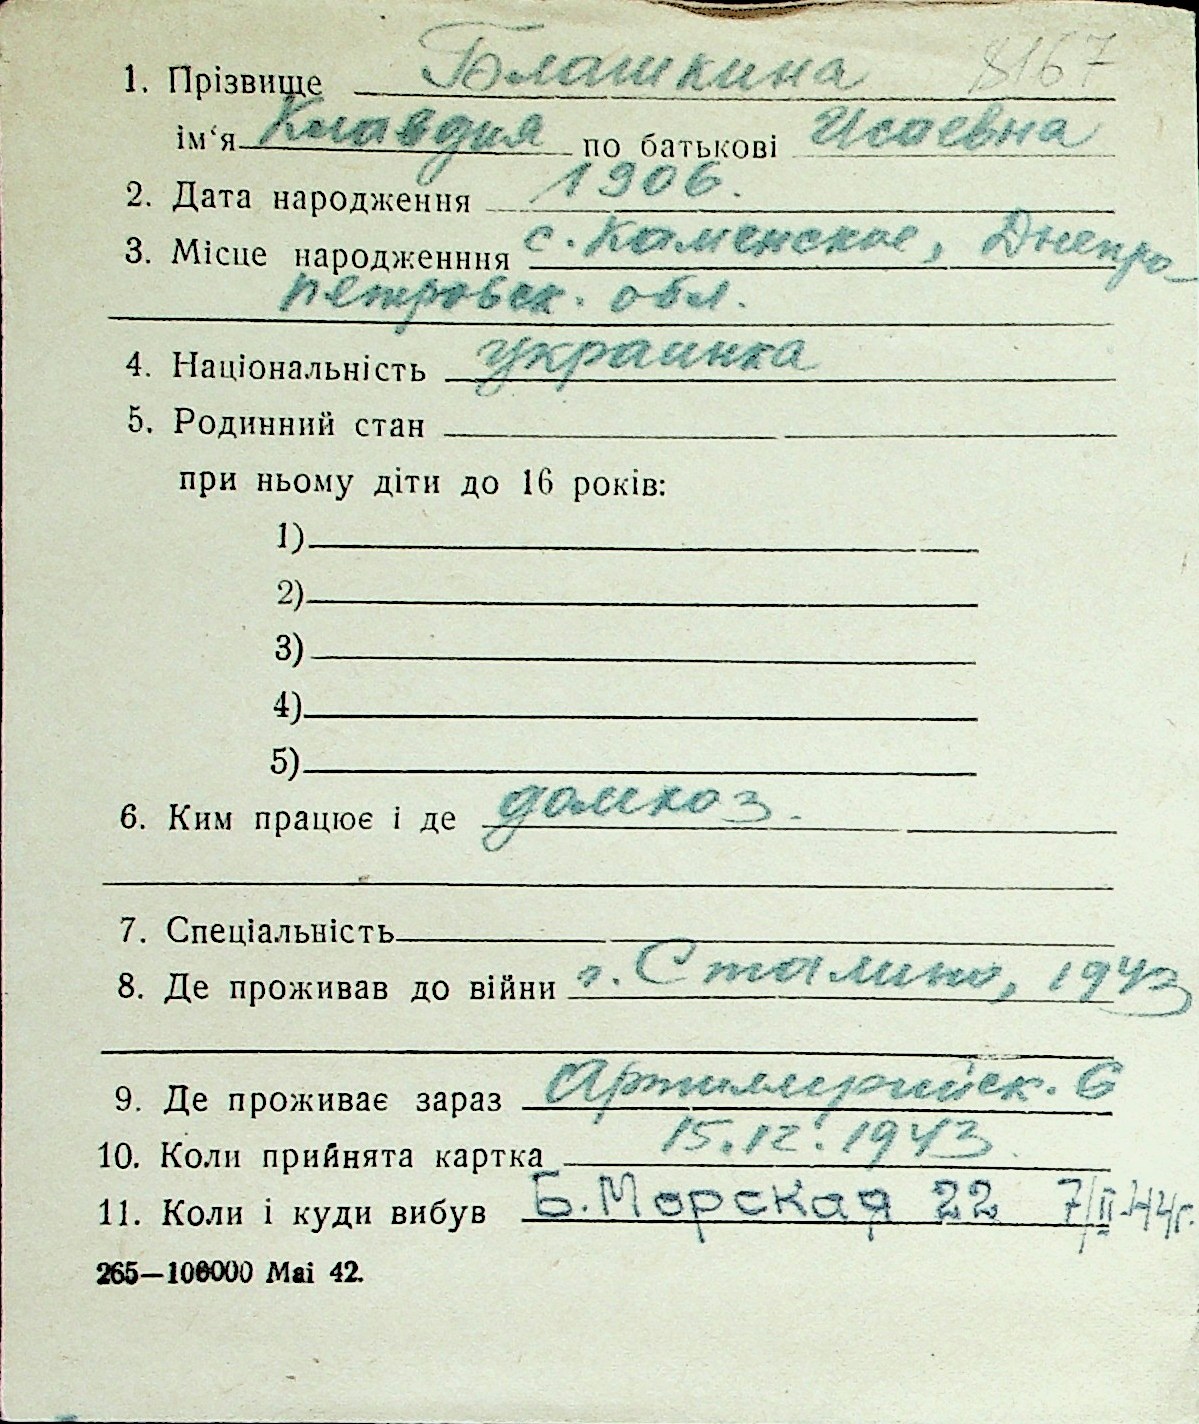 8167
1. Прізвище Блашкина
ім‘я Клавдия по батькові Исаевна
2. Дата народження 1906.
3. Місце народженння с. Каменское, Днепро-
петровск. обл.
4. Національність украинка
5. Родинний стан
при ньому діти до 16 років:
1)
2)
3)
4)
5)
6. Ким працює і де домхоз.
7. Спеціальність
8. Де проживав до війни г. Сталино, 1943
9. Де проживає зараз Артиллерийск. 6
10. Коли прийнята картка 15.12.1943
11. Коли і куди вибув Б. Морская 22 7/II-44г.
265—100000 Mai 42.